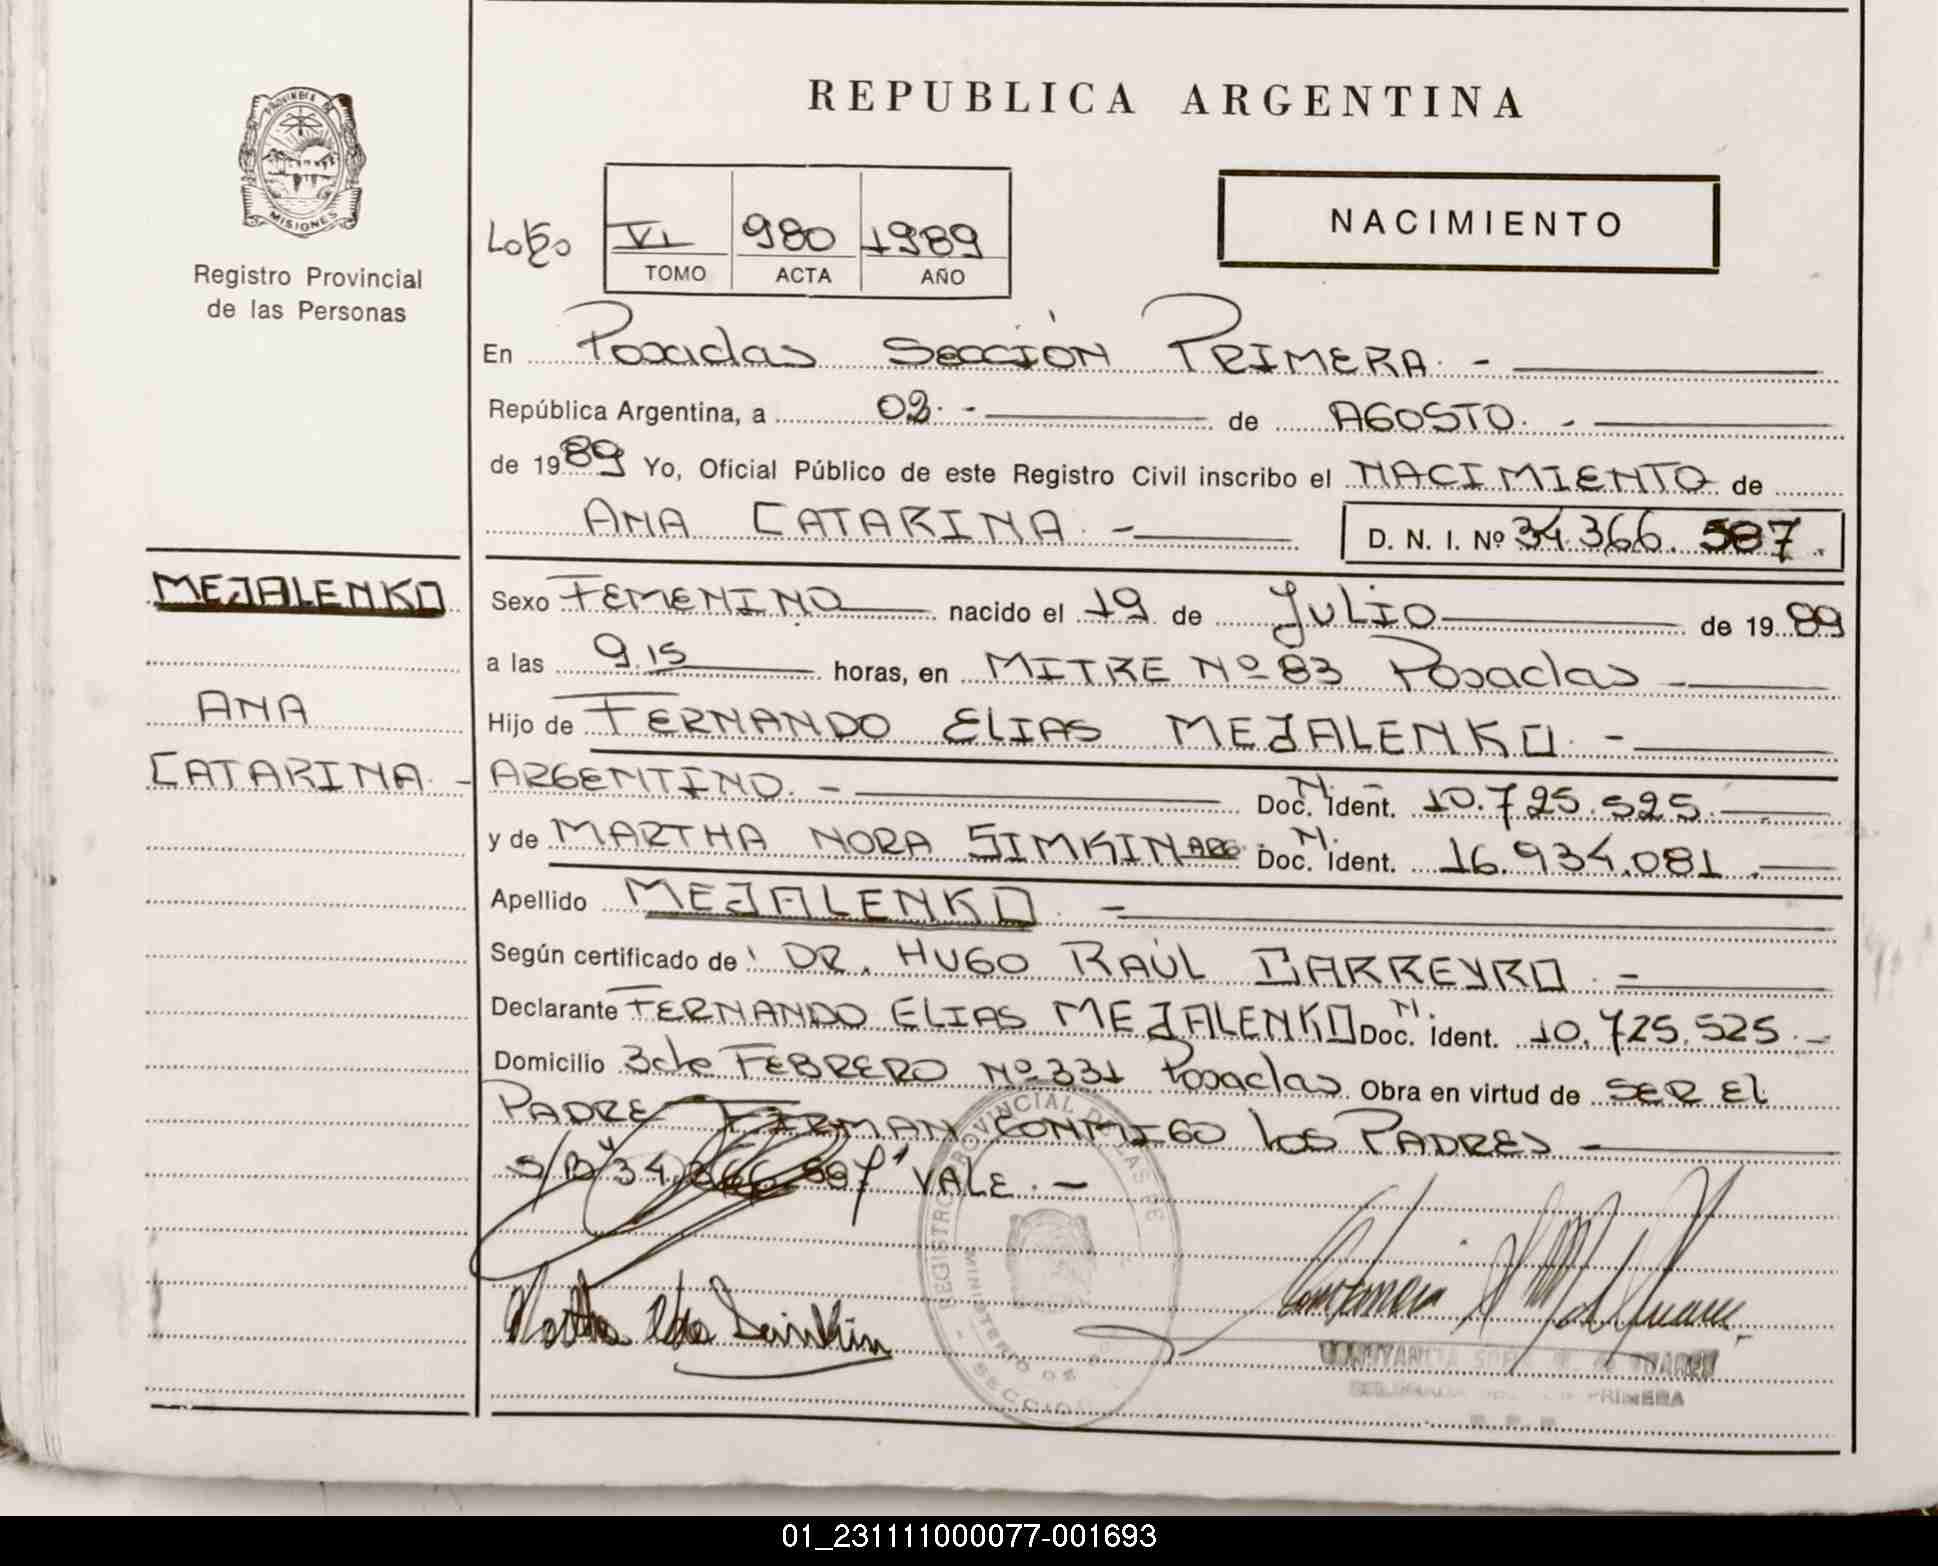 REPUBLICA ARGENTINA
PROVINCIA DE
MISIONES
Registro Provincial
de las Personas
NACIMIENTO
VI 980 1989
TOMO ACTA AÑO
En Posadas SECCIÓN PRIMERA. -
República Argentina, a 02. - de AGOSTO. -
de 1989 Yo, Oficial Público de este Registro Civil inscribo el NACIMIENTO de
ANA CATARINA. - D. N. I. Nº 34.366.587.
MEJALENKO
ANA
CATARINA. -
Sexo FEMENINO nacido el 19 de Julio de 1989
a las 9.15 horas, en MITRE Nº 83 Posadas -
Hijo de FERNANDO ELIAS MEJALENKO. -
ARGENTINO. - Doc. Ident. N. 10.725.525. -
y de MARTHA NORA SIMKIN ARG. Doc. Ident. N. 16.934.081. -
Apellido MEJALENKO. -
Según certificado de: DR. HUGO RAÚL BARREYRO. -
Declarante FERNANDO ELIAS MEJALENKO Doc. Ident. N. 10.725.525. -
Domicilio 3 de FEBRERO Nº 331 Posadas Obra en virtud de SER El
PADRE FIRMAN CONMIGO los PADRES -
S/B "34.366.587" VALE. -
REGISTRO PROVINCIAL DE LAS PE
MINISTERIO DE
SECCIO
PRIMERA
01_231111000077-001693